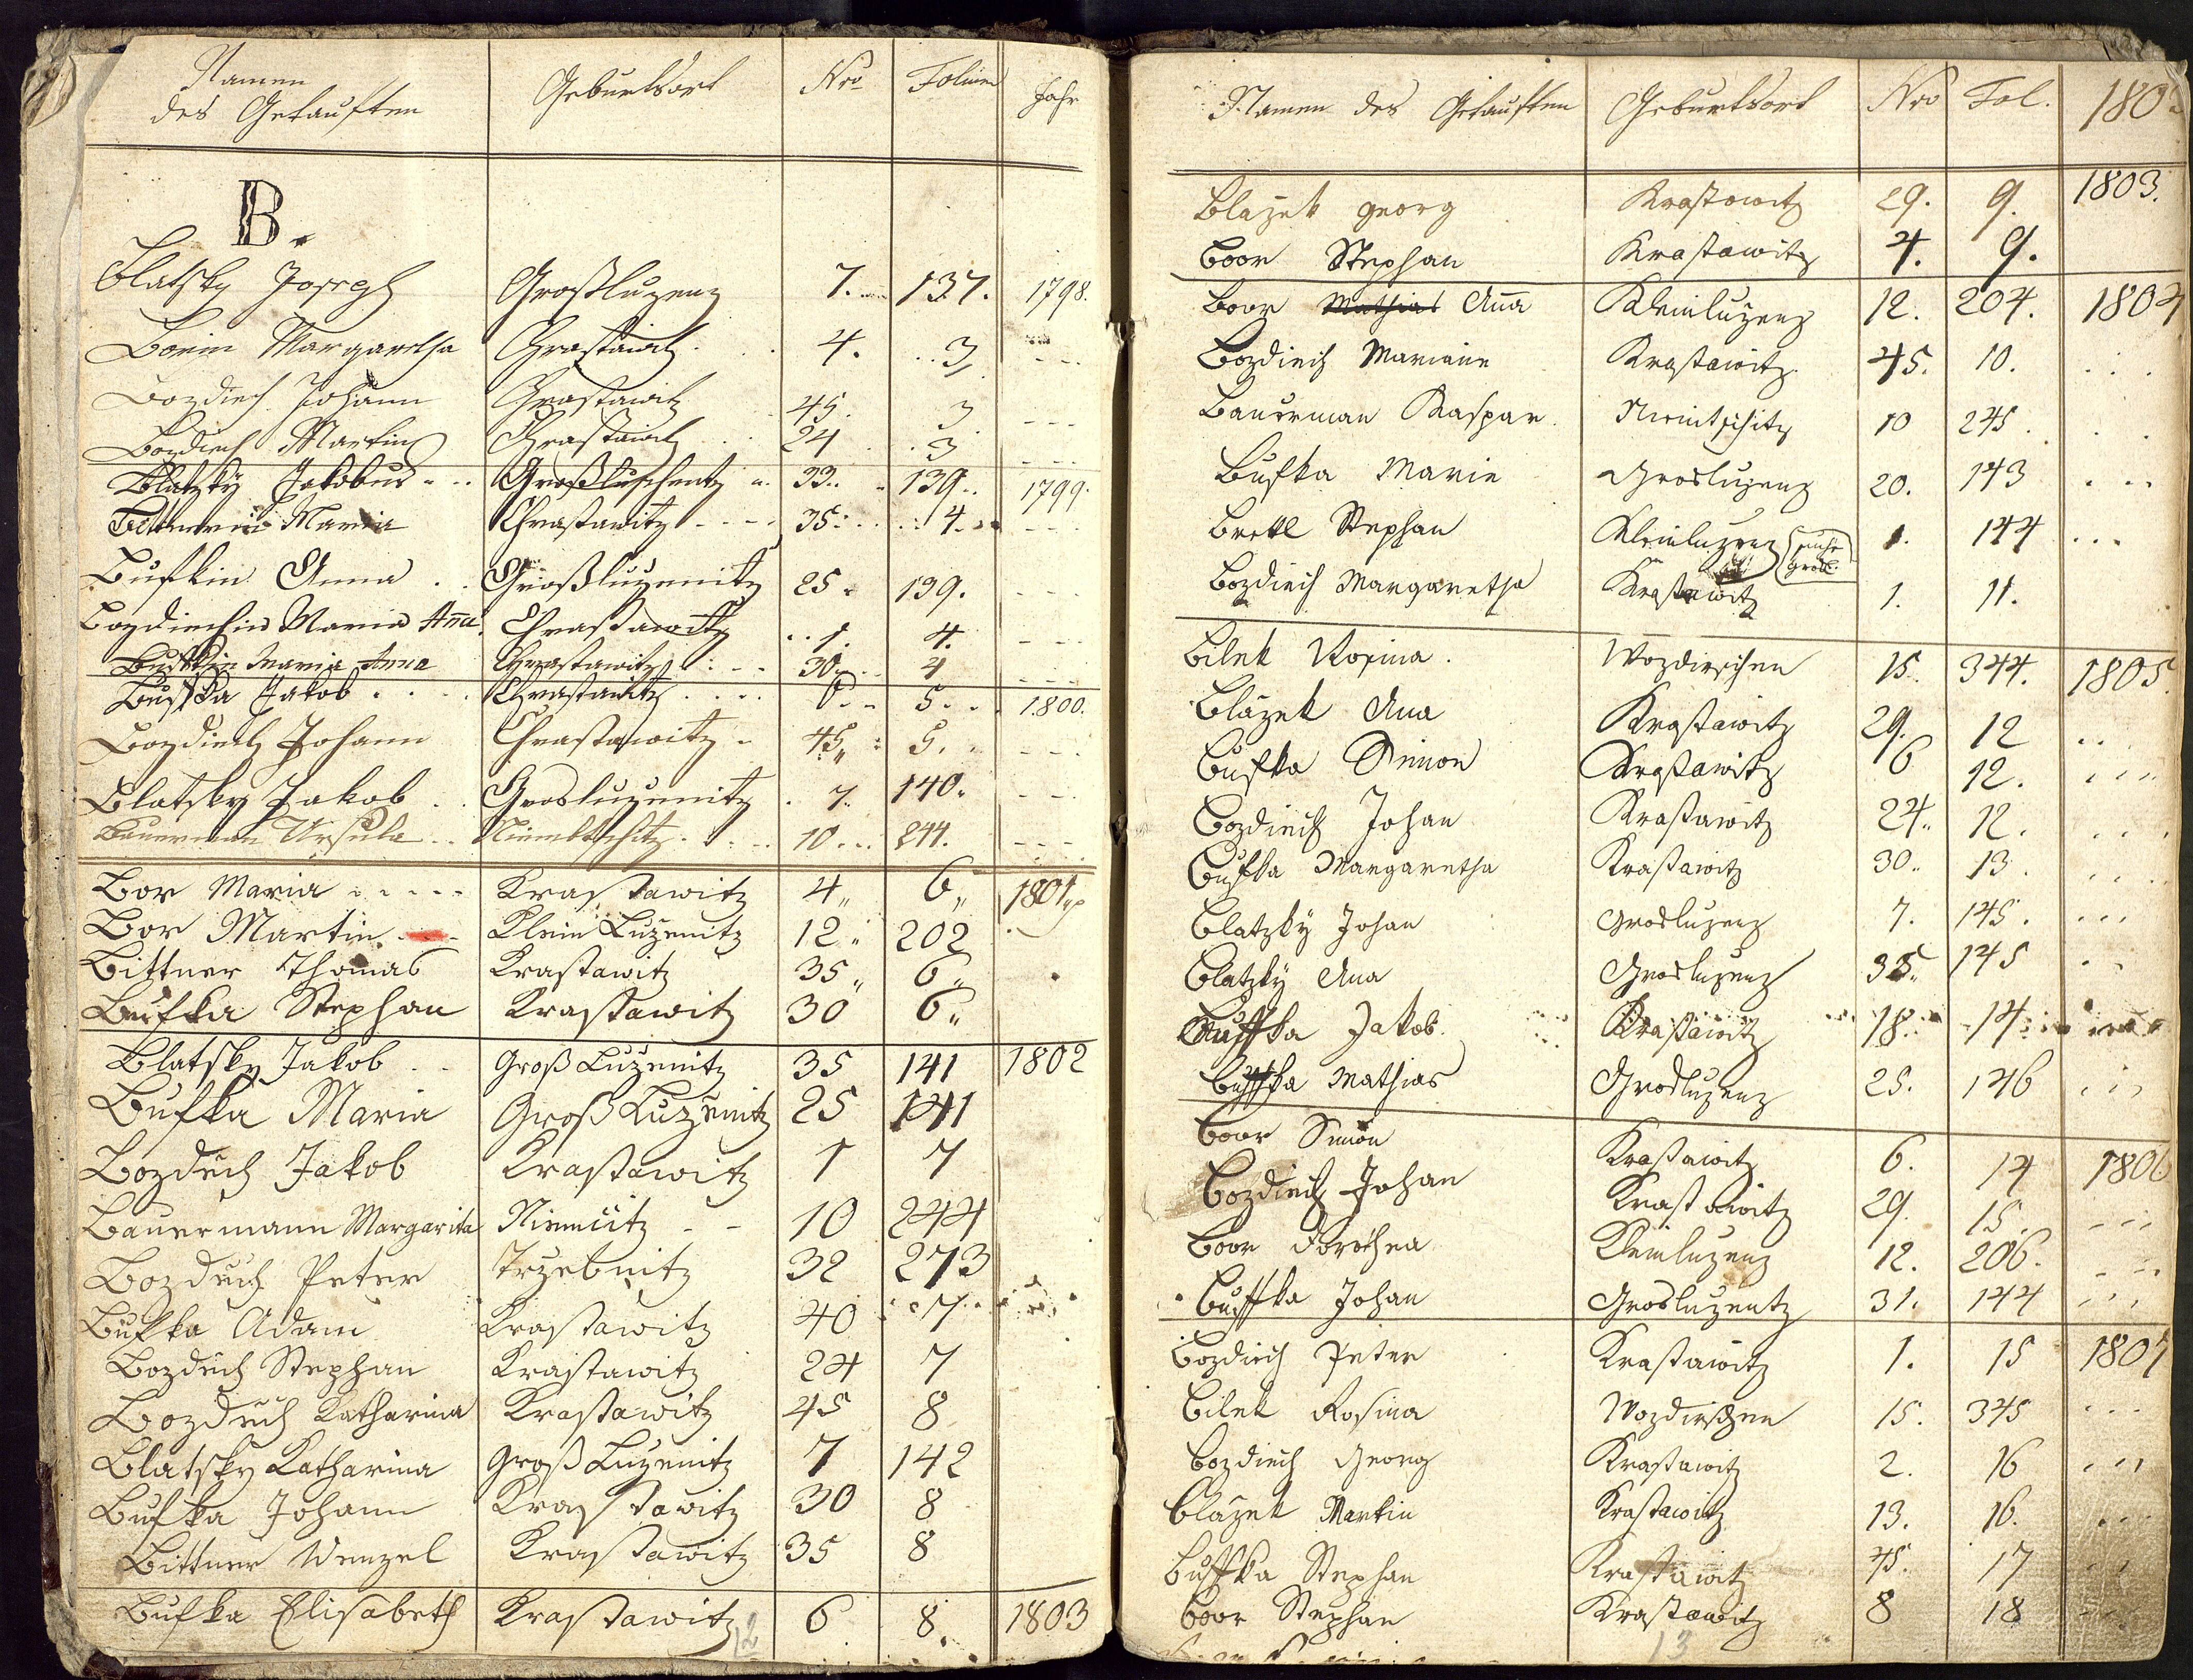 Namen
des Getauften Geburtsort Nro Folium Jahr
B.
Blatsky Joseph Großluzenz 7. 137. 1798.
Borin Margaretha Chrastawitz 4. 3
Bozdiech Johann Chrastawitz 45. 3
Bozdiech Martin Chrastawitz 24 3
Blatzky Jakobus Großluschentz 33. 139. 1799.
Maria Chrastawitz 35. 4.
Bufkin Anna Großluzenitz 25. 139.
Bozdiechin Maria Anna Chrastawitz 1. 4.
Bufkin Maria Anna Chrastawitz 30 4
Bufka Jakob Chrastawitz 6 5. 1800.
Bozdiech Johann Chrastawitz 45 5.
Blatsky Jakob Grosluzenitz 7. 140.
Bauerman Ursula Niemtschitz 10 244.
Bor Maria Krastawitz 4 6 1801
Bor Martin Klein Luzenitz 12 202
Bittner Thomas Krastawitz 35 6
Bufka Stephan Krastawitz 30 6
Blatsky Jakob Groß Luzenitz 35 141 1802
Bufka Maria Groß Luzenitz 25 141
Bozdiech Jakob Krastawitz 1 7
Bauermann Margarita 10 244
Bozdiech Peter Trzebnitz 32 273
Bufka Adam Krastawitz 40 7
Bozdiech Stephan Krastawitz 24 7
Bozdiech Katharina Krastawitz 45 8
Blatsky Katharina Groß Luzenitz 7 142
Bufka Johann Krastawitz 30 8
Bittner Wenzel Krastawitz 35 8
Bufka Elisabeth Krastawitz 6 8. 1803
12
Namen des Getauften Geburtsort Nro Fol. 180
Blažek Georg Krastowitz 29. 9. 1803.
Boor Stephan Krastawitz 4. 9.
Boor Mathias Aña Kleinluzenz 12. 204. 1804
Bozdiech Marianne Krastawitz 45. 10.
Bauerman Kaspar Niemtschitz 10 245
Bufka Marie Grosluzenz 20. 143
Brettl Stephan Kleinluzenz 1. 144
Bozdiech Margaretha Krastawitz 1. 11.
Bilek Rosina Wozdirschen 15. 344. 1805.
Blažek Ana Krastawitz 29. 12
Bufka Simon Krastawitz 6 12.
Bozdiech Johan Krastawitz 24. 12.
Bufka Margaretha Krastawitz 30. 13.
Blatzky Johan Grosluzenz 7. 145.
Blatzky Ana Grosluzenz 33. 145
Buffka Jakob. Krastawitz 18. 14
Buffka Mathias Grosluzenz 25. 146
Boor Simon Krastawitz 6. 14 1806
Bozdiech Johan Krastawitz 29. 15.
Boor Dorothea Kleinluzenz 12. 206.
Buffka Johan Grosluzentz 31. 144
Bozdiech Peter Krastawitz 1. 15 1807
Bilek Rosina Wozdirschen 15. 345
Bozdiech Georg Krastawitz 2. 16
Blažek Martin Krastawitz 13. 16.
Buffka Stephan Krastawitz 45. 17
Boor Stephan Krastawitz 8 18
13